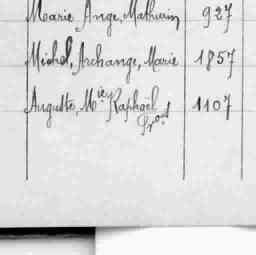 Marie Ange, Mathurin 927
Michel, Archange, Marie 1857
Auguste, Mie Raphaël 1107